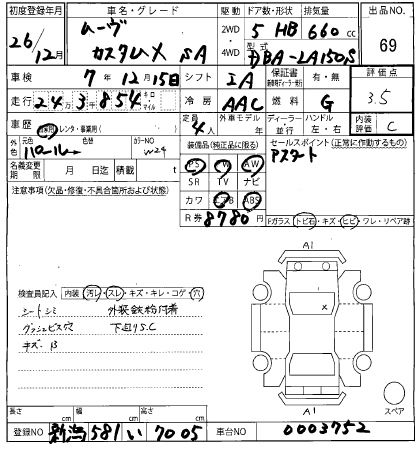 初度登録年月 車名・グレード 駆動 ドア数・形状 排気量 出品NO.
26/12月 ムーヴ カスタムX SA 2WD 4WD 5 HB 660 cc 69
型式 DBA-LA150S
車検 7年 12月 15日 シフト IA 保証書 有・無 評価点
走行 24万3千854 キロ マイル 冷房 AAC 燃料 G 3.5
車歴 自家用・レンタ・事業用( ) 定員 4人 外車モデル 年 ディーラー 並行 ハンドル 左・右 内装評価 C
外色 元色 パール 色替 カラーNO W24 装備品(純正品に限る) セールスポイント(正常に作動するもの)
名義変更期限 月 日迄 積載 t PS PW AW Pスタート
注意事項(欠品・修復・不具合箇所および状態) SR TV ナビ
カワ エアB ABS
R券 8780円 Fガラス(トビ石・キズ・ヒビ・ワレ・リペア跡)
A1
検査員記入 内装(汚レ・スレ・キズ・キレ・コゲ・穴)
シートシミ
ダッシュビス穴 下回りS.C
キズ・B
X
A1
スペア
長さ cm 幅 cm 高さ cm
登録NO 新潟 581 い 7005 車台NO 0003752